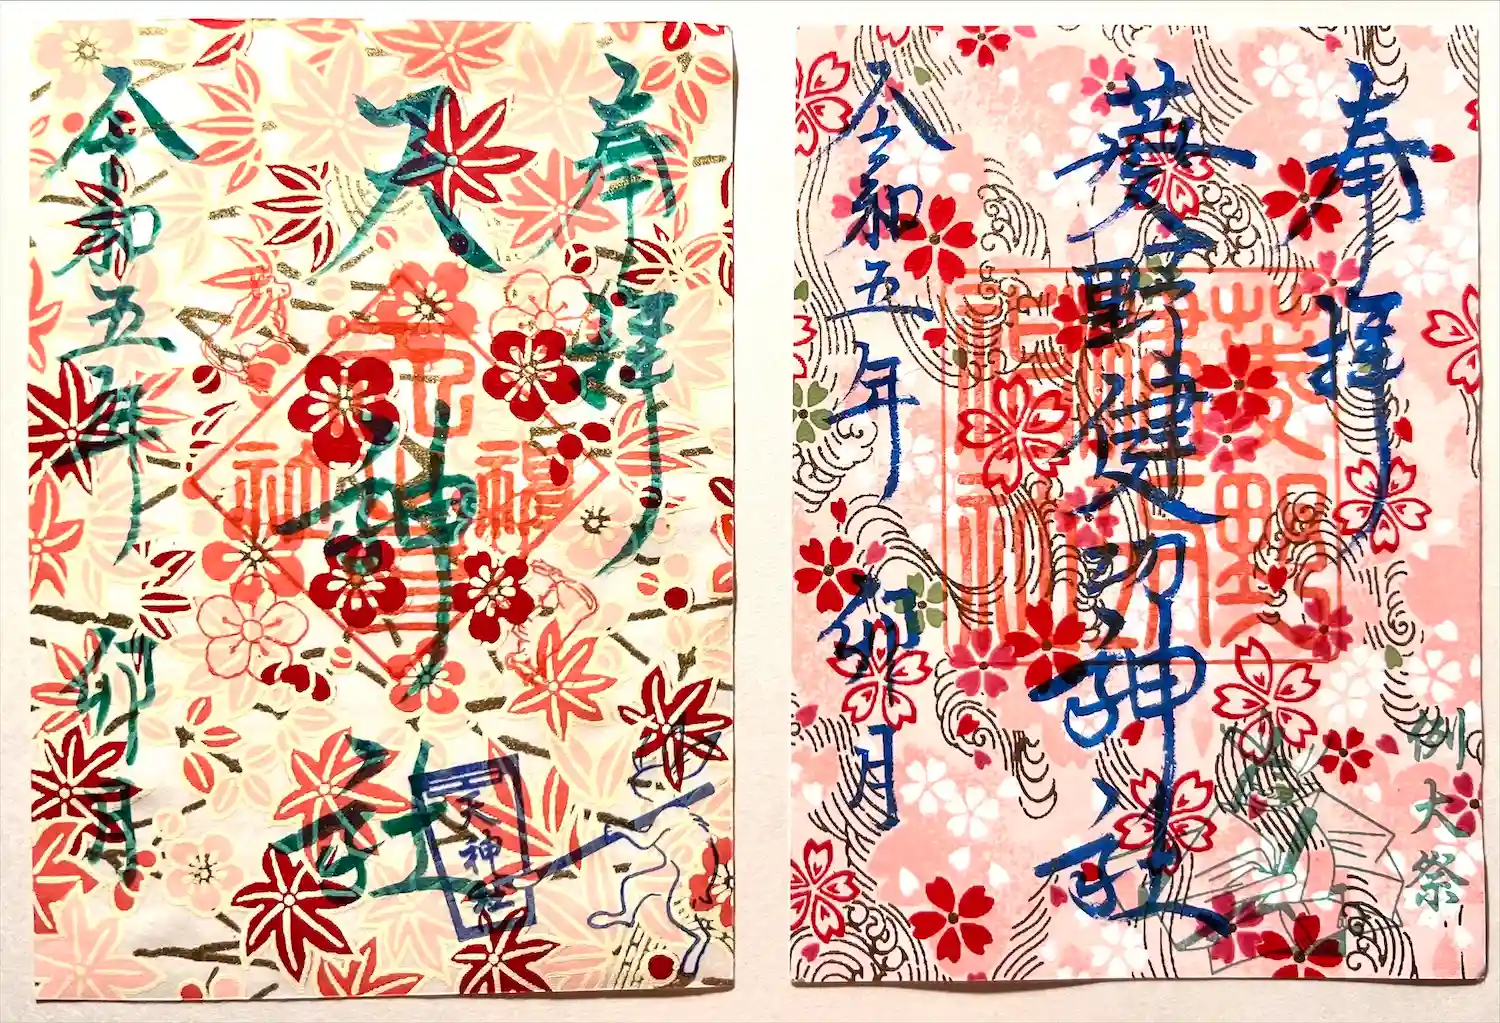 奉拝
天神社
令和五年
卯月
天神社
奉拝
菱野健功神社
令和五年
卯月
例大祭
菱野
健功
神社